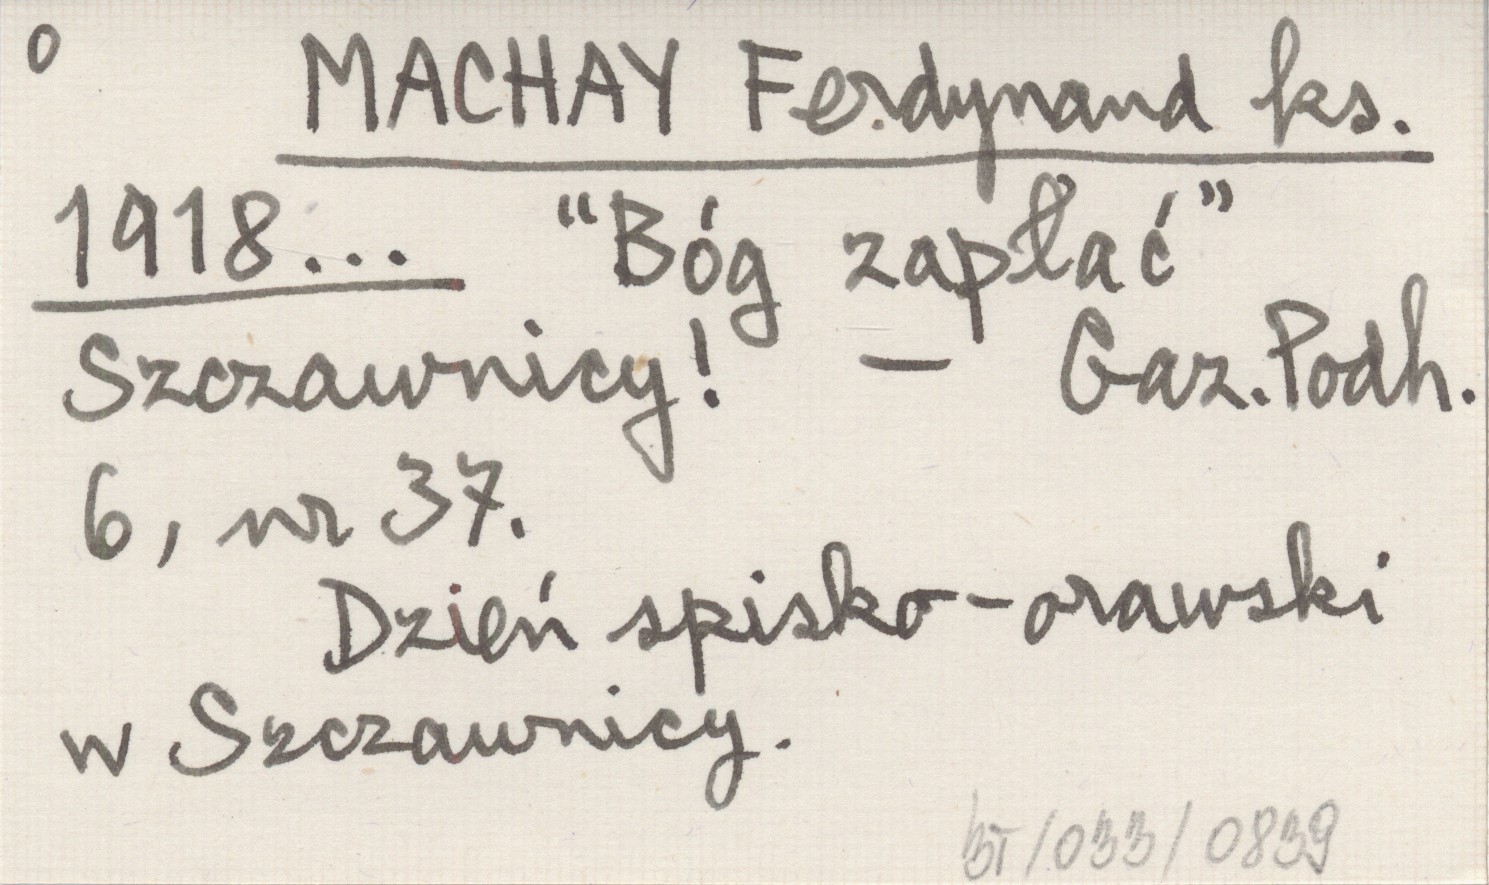 o MACHAY Ferdynand ks.
1918... "Bóg zapłać"
Szczawnicy! — Gaz. Podh.
6, nr 37.
Dzień spisko-orawski
w Szczawnicy.
/033/0839